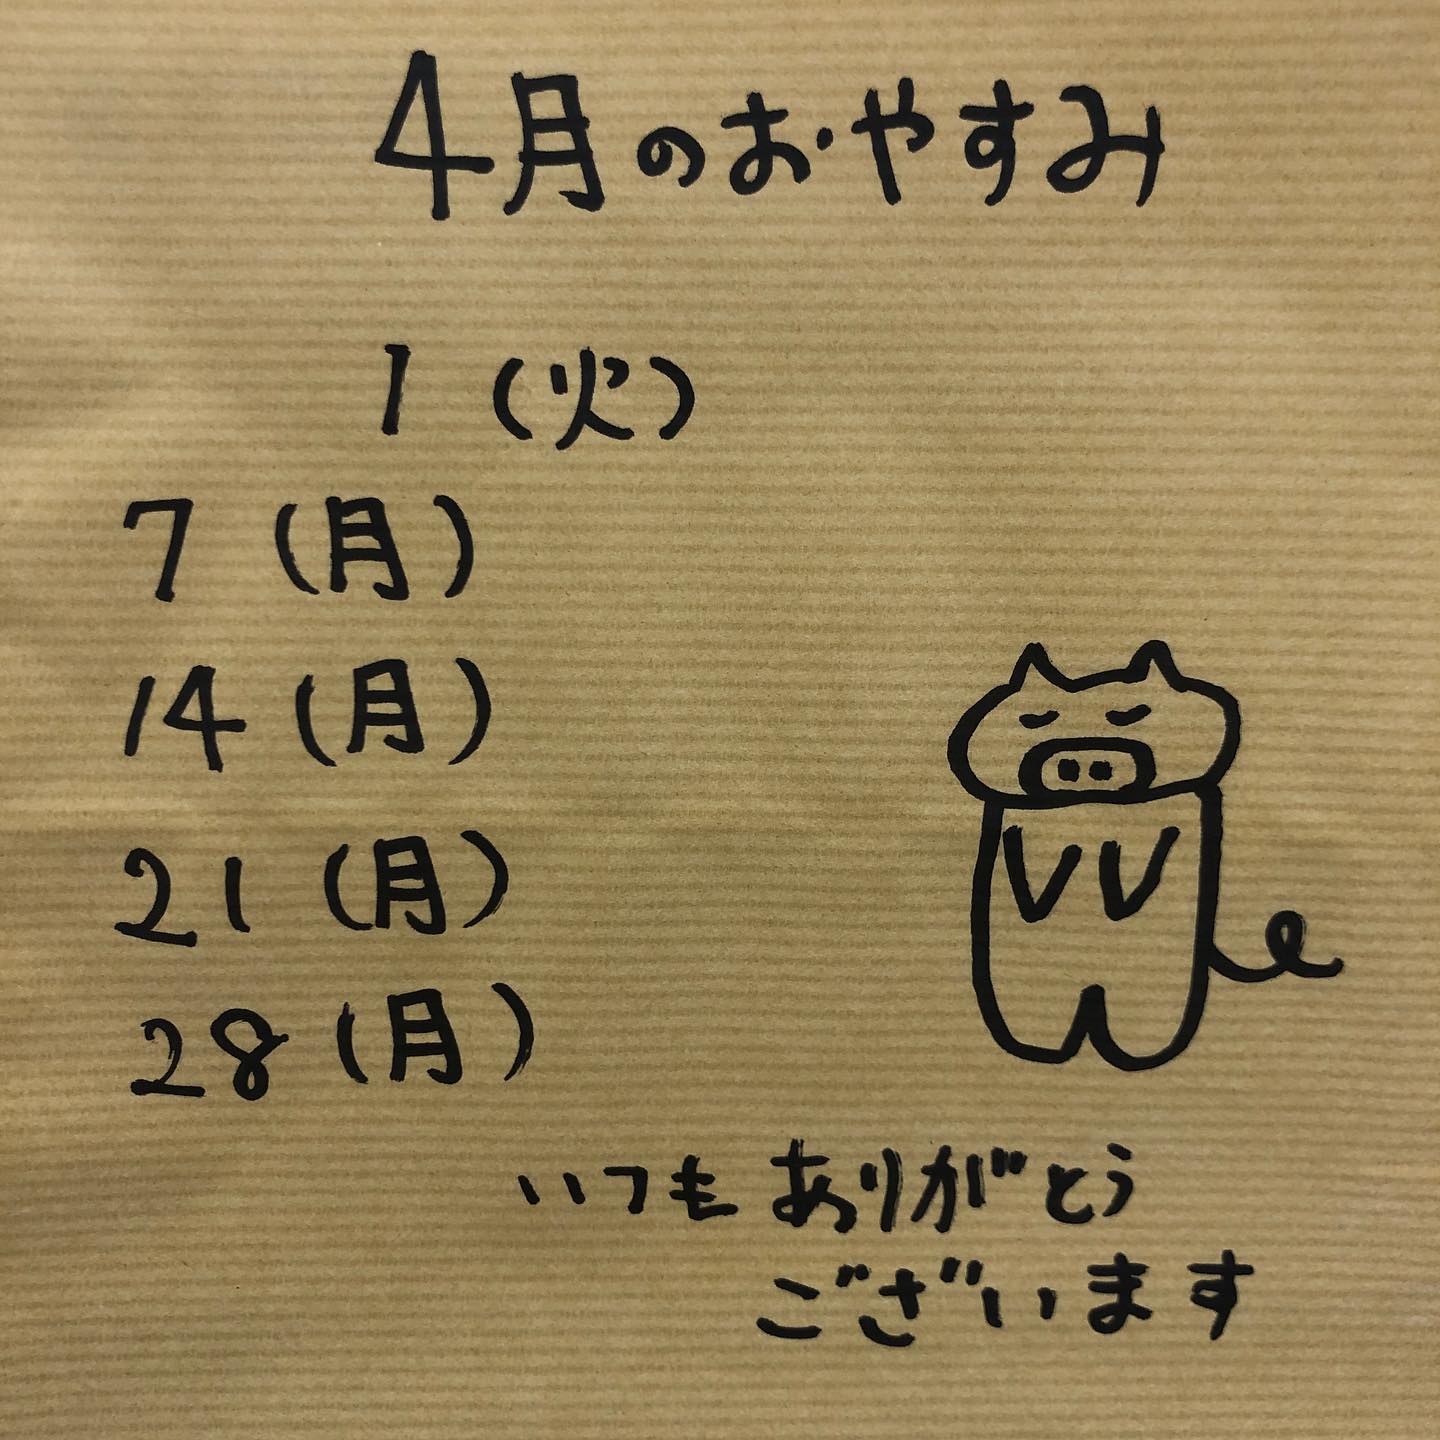 4月のおやすみ
1（火）
7（月）
14（月）
21（月）
28（月）
いつもありがとう
ございます